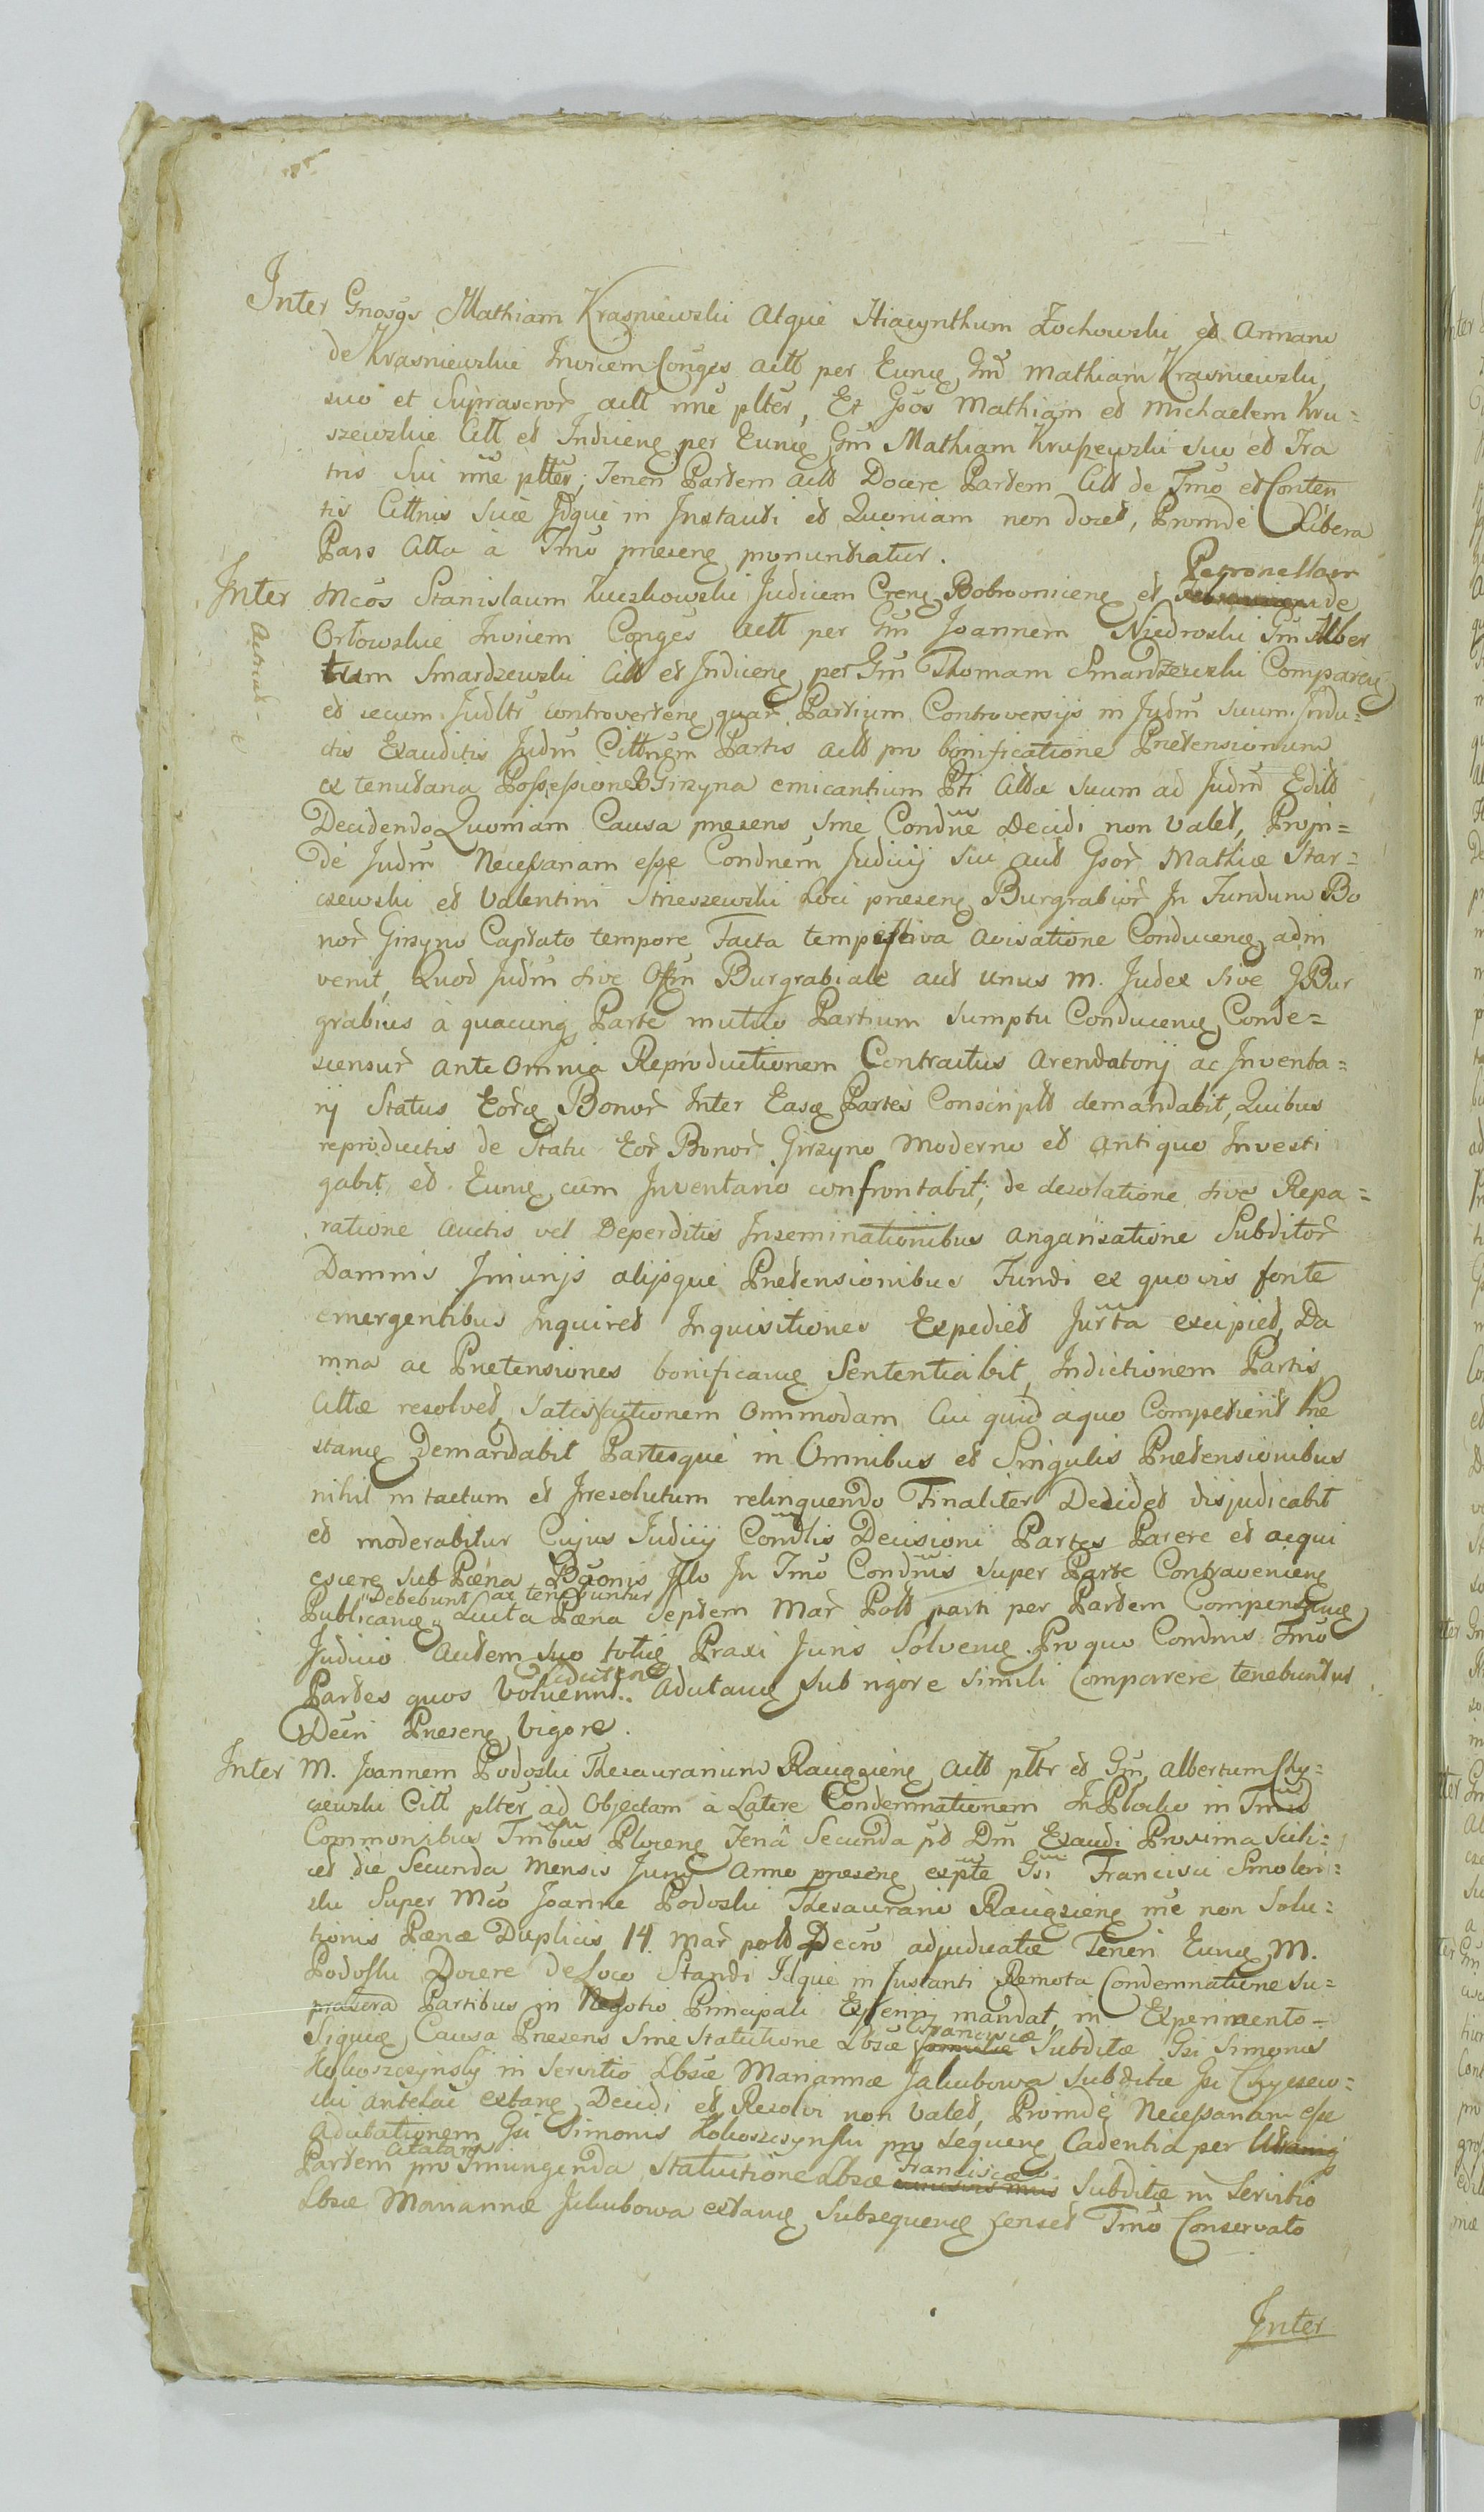 Inter Gnosqs Mathiam Krasniewski Atque Hiacynthum Żochowski et Annam
de Krasniewskie Invicem Conges actt per Eunq Gm Mathiam Krasniewski
suo et Suprascror actt nne plter, Et Gsos Mathiam et Michaelem Kru=
szewskie Citt et Inducenq per Eunq Gm Mathiam Kruszewski suo et Fra
tris Sui nne plter, Teneri Partem actt Docere Partem Citt de Tmo et Conten
tis Cittnis Suae Idque in Instanti et Quoniam non docet, Proinde Libera
Pars Citta à Tmo presenq pronuntiatur.
Petronellam
Inter Mcos Stanislaum Kuczkowski Judicem Crenq Bobrovnicenq et de
Orłowskie Invicem Conges actt per Gm Joannem Niedroski Gm Alber
tum Smardzewski Citt et Indicenq per Gm Thomam Smardzewski Comparenq
et secum Judltr controvertenq quar Partium Controversijs in Judm suum Indu=
ctis Exauditis Judm Cittnem Partis actt pro bonificatione Pretensionum
ex tenutaria Possessione B Girzyna emicantium Pti Cittae suum ad Judm Editt
Decidendo Quoniam Causa presens sine Condne Decidi non valet, Proin=
de Judm Necessariam esse Condnem Judicij sui aut Gsor Mathiae Star=
czewski et Valentini Strzeszewski Loci presenq Burgrabior In Fundum Bo
nor Girzyno Captato tempore Facta tempestiva avisatione Conducenq adin
venit, Quod Judm sive Offm Burgrabiale aut unus M. Judex sive G Bur
grabius à quacunq Parte mutuo Partium sumptu Conducenq Conde=
scensur ante omnia Reproductionem Contractus Arendatorij ac Inventa=
rij Status Eorq Bonor Inter Easq Partes Conscriptt demandabit, Quibus
reproductis de Statu Eor Bonor Girzyno Moderno et antiquo Investi
gabit et Eunq cum Inventario confrontabit, de desolatione sive Repa=
ratione auctis vel Deperditis Inseminationibus angarisatione Subditor
Damnis Injurijs alijsque Pretensionibus Fundi ex quovis fonte
emergentibus Inquiret Inquisitiones Expediet Jurta excipiet, Da
mna ac Pretensiones bonificanq Sententiabit, Indictionem Partis
Cittae resolvet, satisfactionem omnimodam Cui quid a quo Competierit Pre
stanq Demandabit Partesque in Omnibus et Singulis Pretensionibus
nihil intactum et Irresolutum relinquendo Finaliter Decidet disjudicabit
et moderabitur Cujus Judicij Condlis Decisioni Partes Parere et acqui
escere sub Paena Baonis Illo In Tmo Condnis super Parte Contravenienq
Debebunt ac tenebuntur
Publicanq Luita Paena septem Mar Poll parti per Partem Compensanq
Judicio autem suo totiq Praxi Juris Solvenq Pro quo Condnis Tmo
Partes quos voluerint Adutanq sub rigore simili Comparere tenebuntur
Decri Presenq Vigore.
Inter M. Joannem Podoski Thesaurarium Raugzienq actt pltr et Gm Albertum Chy=
czewski Citt plter ad Objectam à Latere Condemnationem In Plocko in Tmis
Commonibus Tmibus Plocenq Fena Secunda pt Dm Exaudi Proxima scili=
cet die Secunda mensis Junij Anno presenq expte Gsi Francisci Smoleń=
ski Super Mco Joanne Podoski Thesaurario Raugzienq nne non Solu=
tionis Paenae Duplicis 14 Mar poll Decro adjudicatae Teneri Eunq M.
Podoski Docere de Loco Standi Idque in Instanti Remota Condemnatione su=
prascra Partibus in Negotio Principali Experiri mandat, in Experimento=
Franciscae
Siquiq Causa Presens Sine statutione Lbsae Subditae Gsi Simonis
Kokoszczynski in servitio Lbsae Mariannae Jakubowa Subditae Gsi Chyczew=
ski antelac extanq Decidi et Resolvi non valet, Proinde Necessariam esse
Adcitationem Gsi Simonis Kokoszczynski pro sequenq Cadentia per
Citatam Franciscae
Partem pro Iniungenda Statuitione Lbsae Subditae in servitio
Lbsae Mariannae Jakubowa extanq Subsequenq censet Tmo Conservato
Inter